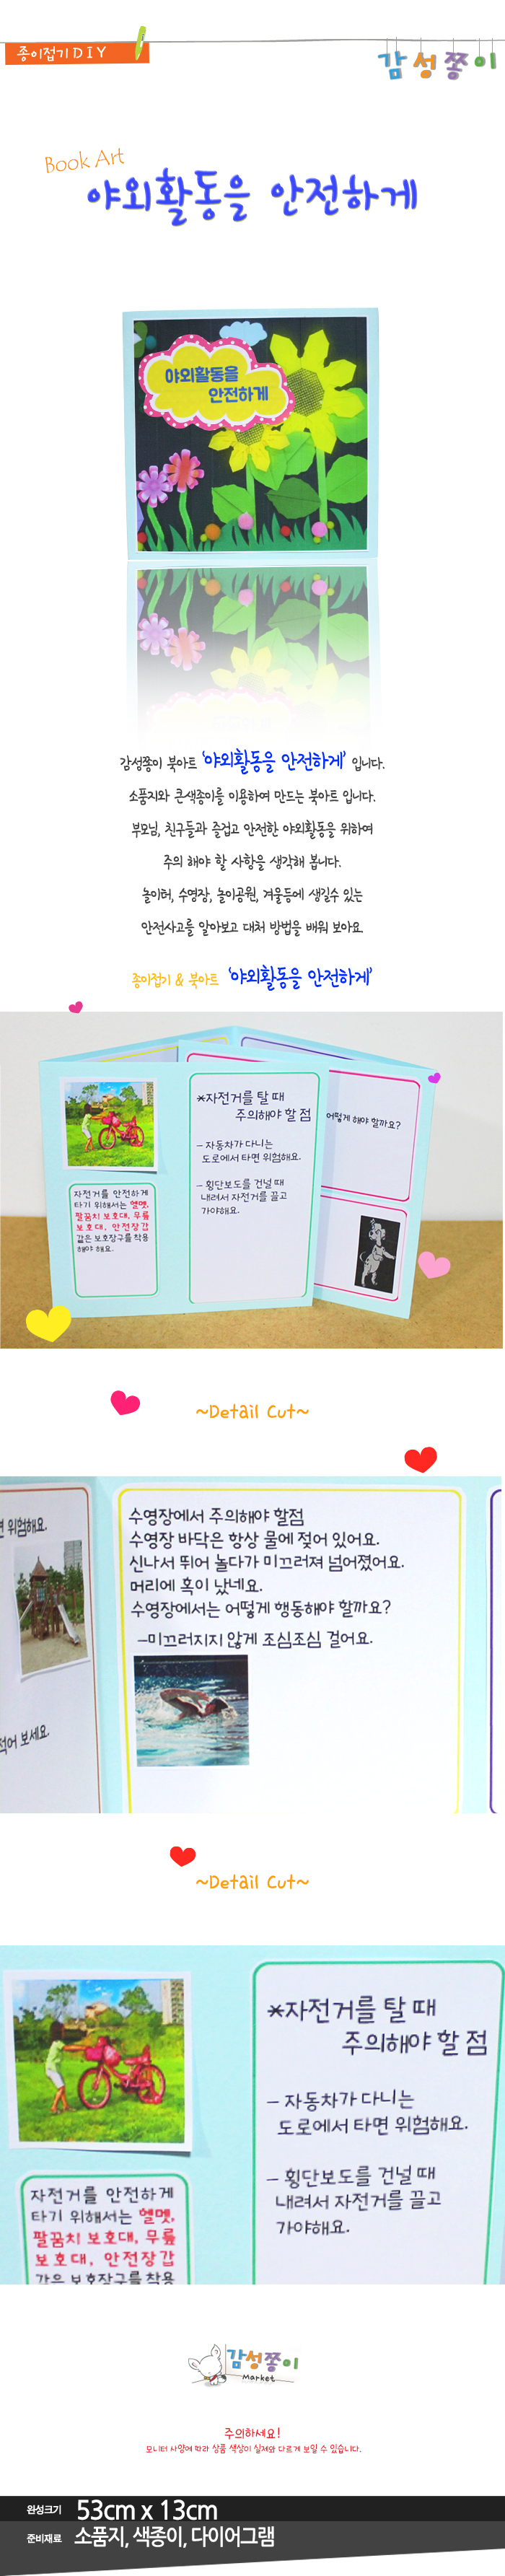 종이접기 D I Y
감성쫑이
Book Art
야외활동을 안전하게
야외활동을
안전하게
감성쫑이 북아트 '야외활동을 안전하게' 입니다.
소품지와 큰색종이를 이용하여 만드는 북아트 입니다.
부모님, 친구들과 즐겁고 안전한 야외활동을 위하여
주의 해야 할 사항을 생각해 봅니다.
놀이터, 수영장, 놀이공원, 겨울등에 생길수 있는
안전사고를 알아보고 대처 방법을 배워 보아요.
종이접기 & 북아트 '야외활동을 안전하게'
*자전거를 탈 때
주의해야 할 점
- 자동차가 다니는
도로에서 타면 위험해요.
- 횡단보도를 건널 때
내려서 자전거를 끌고
가야해요.
어떻게 해야 할까요?
자전거를 안전하게
타기 위해서는 헬멧,
팔꿈치 보호대, 무릎
보호대, 안전장갑
같은 보호장구를 착용
해야 해요.
~Detail Cut~
위험해요.
적어 보세요.
수영장에서 주의해야 할점
수영장 바닥은 항상 물에 젖어 있어요.
신나서 뛰어 놀다가 미끄러져 넘어졌어요.
머리에 혹이 났네요.
수영장에서는 어떻게 행동해야 할까요?
-미끄러지지 않게 조심조심 걸어요.
~Detail Cut~
*자전거를 탈 때
주의해야 할 점
- 자동차가 다니는
도로에서 타면 위험해요.
- 횡단보도를 건널 때
내려서 자전거를 끌고
가야해요.
자전거를 안전하게
타기 위해서는 헬멧,
팔꿈치 보호대, 무릎
보호대, 안전장갑
같은 보호장구를 착용
감성쫑이
Market
주의하세요!
모니터 사양에 따라 상품 색상이 실제와 다르게 보일 수 있습니다.
완성크기 53cm x 13cm
준비재료 소품지, 색종이, 다이어그램